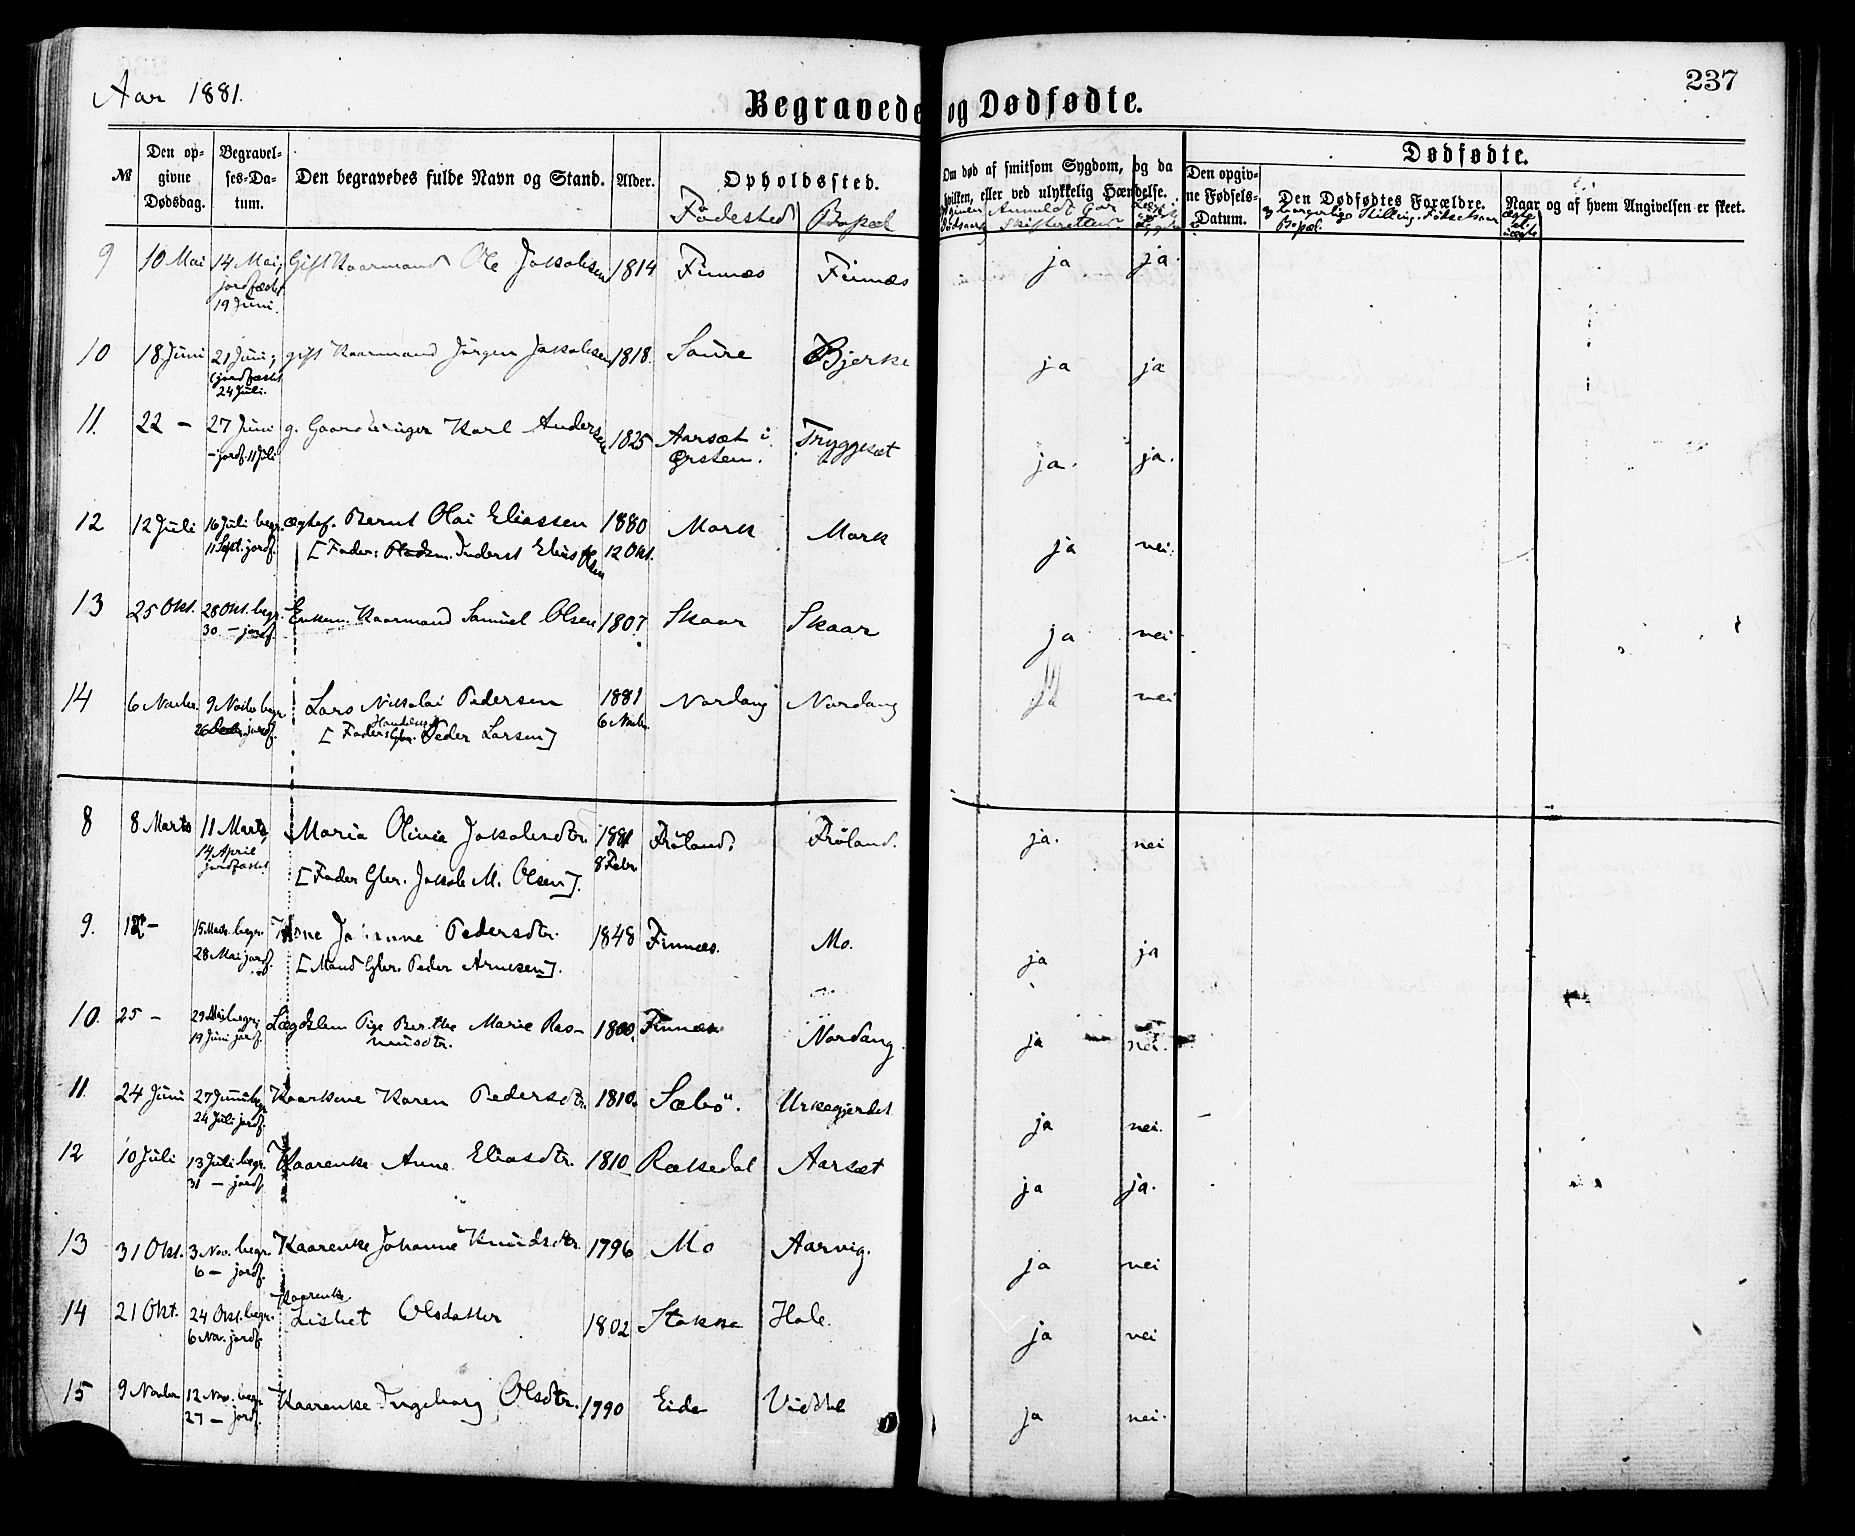 Aar 1881.
237
Begravede og Dødfødte.
№
Den opgivne Dødsdag.
Begravelses-Datum.
Den begravedes fulde Navn og Stand.
Alder.
Opholdssted.
Fødested Bopæl
Om død af smitsom Sygdom, og da
hvilken, eller ved ulykkelig Hændelse.
Anmeldt for
Skifteretten
Dødfødte.
Den opgivne Fødsels-Datum.
Den Dødfødtes Forældre.
Bopæl.
Naar og af hvem Angivelsen er skeet.
9 10 Mai 14 Mai; Gift Kaarmand Ole Jakobsen 1814 Finnæs Finnæs ja ja.
jordfæstet
19 Juni.
10 18 Juni 21 Juni; gift Kaarmand Jörgen Jakobsen 1818. Saure Bjerke ja ja
jordfæstet
24 Juli.
11. 22 - 27 Juni g. Gaardbruger Karl Andersen 1825 Aarsæt i Tryggesæt ja. ja.
- jordf. 11 Juli Ørsten.
12 12 Juli 16 Juli begr. ægtef. Bernt Olai Eliassen 1880 Mork Mork ja nei.
11 Sept. jordf. [Fader: Pladsm. Inderst Elias Olsen 12 Okt.
13 25 Okt. 28 Okt. begr. Enkem. Kaarmand Samuel Olsen 1807. Skaar Skaar ja nei
30 - jordf.
14 6 Novbr. 9 Novbr begr Lars Nikolai Pedersen 1881 Nordang Nordang ja nei
26 Decbr. jordf. [Fader: Gbr. Peder Larsen] 6 Novbr
8 8 Marts 11 Marts, Maria Olivia Jakobsdtr. 1881 Frøland. Frøland. ja. nei
14 April 8 Febr.
jordfæstet [Fader Gbr. Jakob M. Olsen].
9. 12 - 15 Marts begr. Kone Johanne Pedersdtr. 1848 Finnæs. Mo. ja ja
28 Mai jordf. [Mand Gbr. Peder Arnesen].
10. 25 - 29 begr; Lægdslem Pige Berthe Marie Ras- 1800. Finnæs Nordang. ja nei.
19 Juni jordf. musdtr.
11. 24 Juni 27 Juni begr Kaarkone Karen Pedersdtr. 1810. Sæbö. Urkegjerdet ja nei.
24 Juli jordf.
12 10 Juli 13 Juli begr. Kaarenke Anne Eliasdtr. 1810 Ræksedal Aarsæt ja ja.
31 - jordf.
13 31 Okt. 3 Nov. begr. Kaarenke Johanne Knudsdtr. 1796 Mo Aarvig. ja nei
6 - jordf.
Kaarenke
14 21 Okt. 24 Okt. begr. Lisbet Olsdatter 1802 Stokke Hole. ja nei
6 Nov. jordf.
15 9 Novbr 12 Nov. begr Kaarenke Ingeborg Olsdtr. 1790 Eide Viddal ja nei.
27 - jordf.